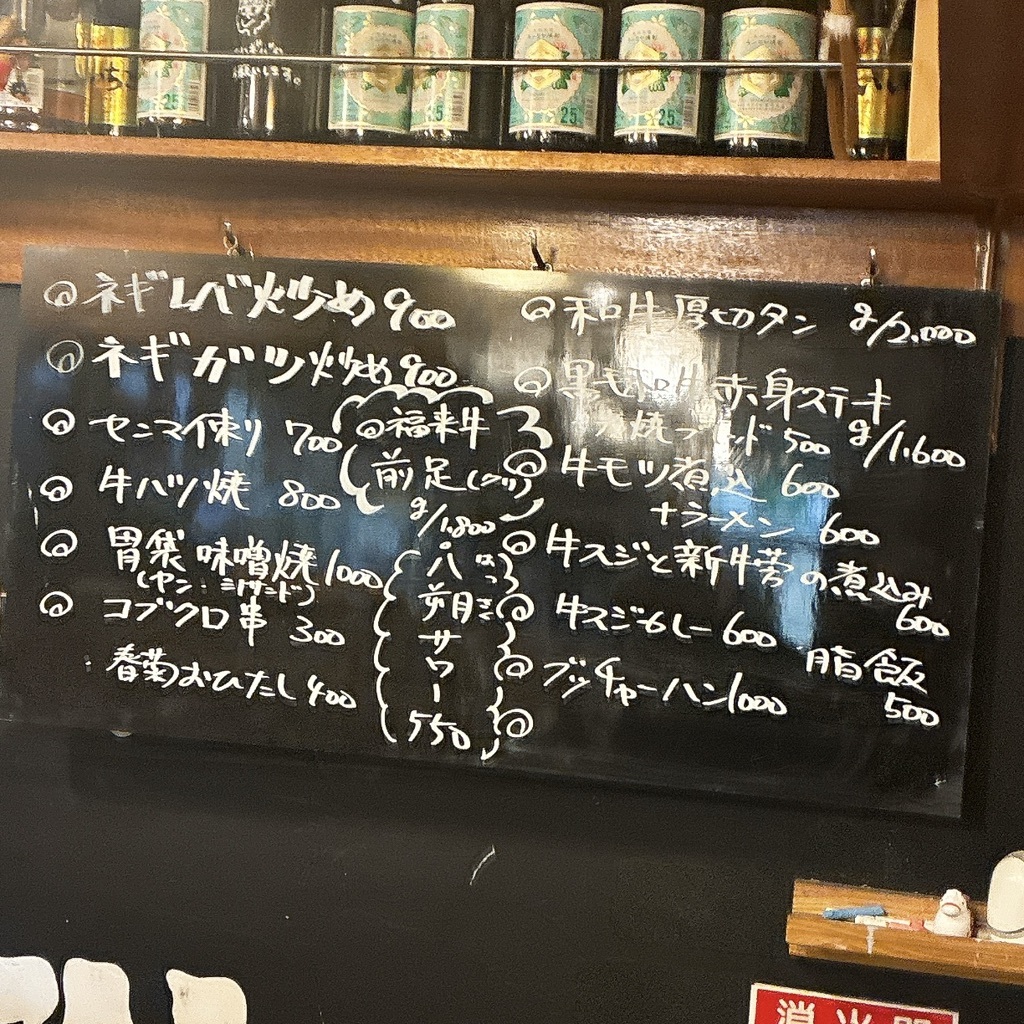 願いします。
25
25
25
25
25
◎ネギレバ炒め 900
◎ネギガツ炒め 900
◎センマイ刺り 700
◎牛ハツ焼 800
◎胃袋味噌焼 1000
(ヤン:ミノサンド)
◎コブクロ串 300
春菊おひたし 400
◎福来牛
前足
g/1,800
八
朔
サ
ワ
ー
550
はっさく
◎和牛厚切タン g/2,000
◎黒毛和牛 赤身ステーキ
g/1,600
焼 ド 500
◎牛モツ煮込 600
+ラーメン 600
◎牛スジと新牛蒡の煮込み
600
◎牛スジカレー 600
脂飯
500
◎ブッチャーハン 1000
◎
消火器